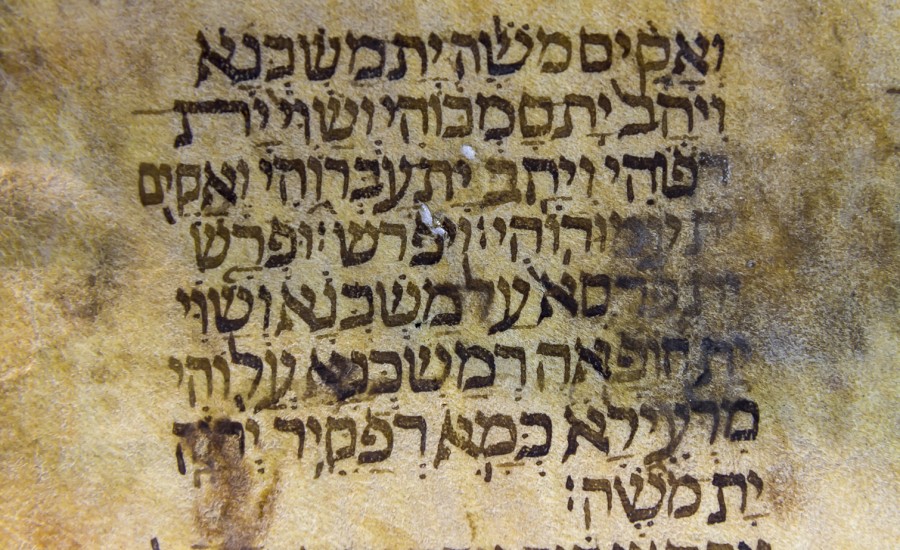 ואקים משה ית משכנא
ויהב ית סמכוהי ושוי ית
דפוהי ויהב ית עברוהי ואקים
ית עמודוהי: ויפרש: ופרש
ית פרסא על משכנא ושוי
ית חופאה דמשכנא עלוהי
מלעילא כמא דפקיד
ית משה: